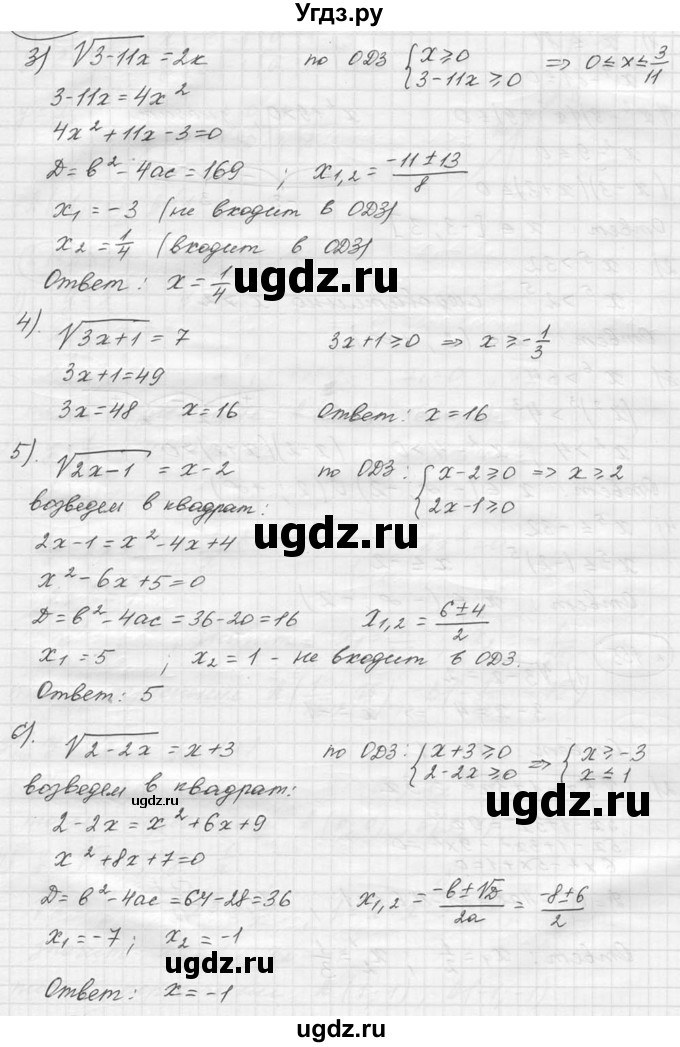 Угдз.ру
3) √3-11x = 2x   по ОДЗ { x ≥ 0 ; 3-11x ≥ 0 ⇒ 0 ≤ x ≤ 3/11
3-11x = 4x²
4x² + 11x - 3 = 0
D = b² - 4ac = 169 ; x₁,₂ = (-11 ± 13)/8
x₁ = -3 (не входит в ОДЗ)
x₂ = 1/4 (входит в ОДЗ)
Ответ: x = 1/4
ugdz.ru
4). √3x+1 = 7   3x+1 ≥ 0 ⇒ x ≥ -1/3
3x+1 = 49
3x = 48   x = 16   Ответ: x = 16
5). √2x-1 = x-2   по ОДЗ: { x-2 ≥ 0 ⇒ x ≥ 2 ; 2x-1 ≥ 0
возведем в квадрат:
ugdz.ru
ugdz.ru
2x-1 = x² - 4x + 4
x² - 6x + 5 = 0
D = b² - 4ac = 36 - 20 = 16   x₁,₂ = (6 ± 4)/2
x₁ = 5 ; x₂ = 1 - не входит в ОДЗ.
Ответ: 5
ugdz.ru
6). √2-2x = x+3   по ОДЗ: { x+3 ≥ 0 ; 2-2x ≥ 0 ⇒ { x ≥ -3 ; x ≤ 1
возведем в квадрат:
ugdz.ru
ugdz.ru
2-2x = x² + 6x + 9
x² + 8x + 7 = 0
D = b² - 4ac = 64 - 28 = 36   x₁,₂ = (-b ± √D)/2a = (-8 ± 6)/2
x₁ = -7 ; x₂ = -1
ugdz.ru
Ответ: x = -1
ugdz.ru